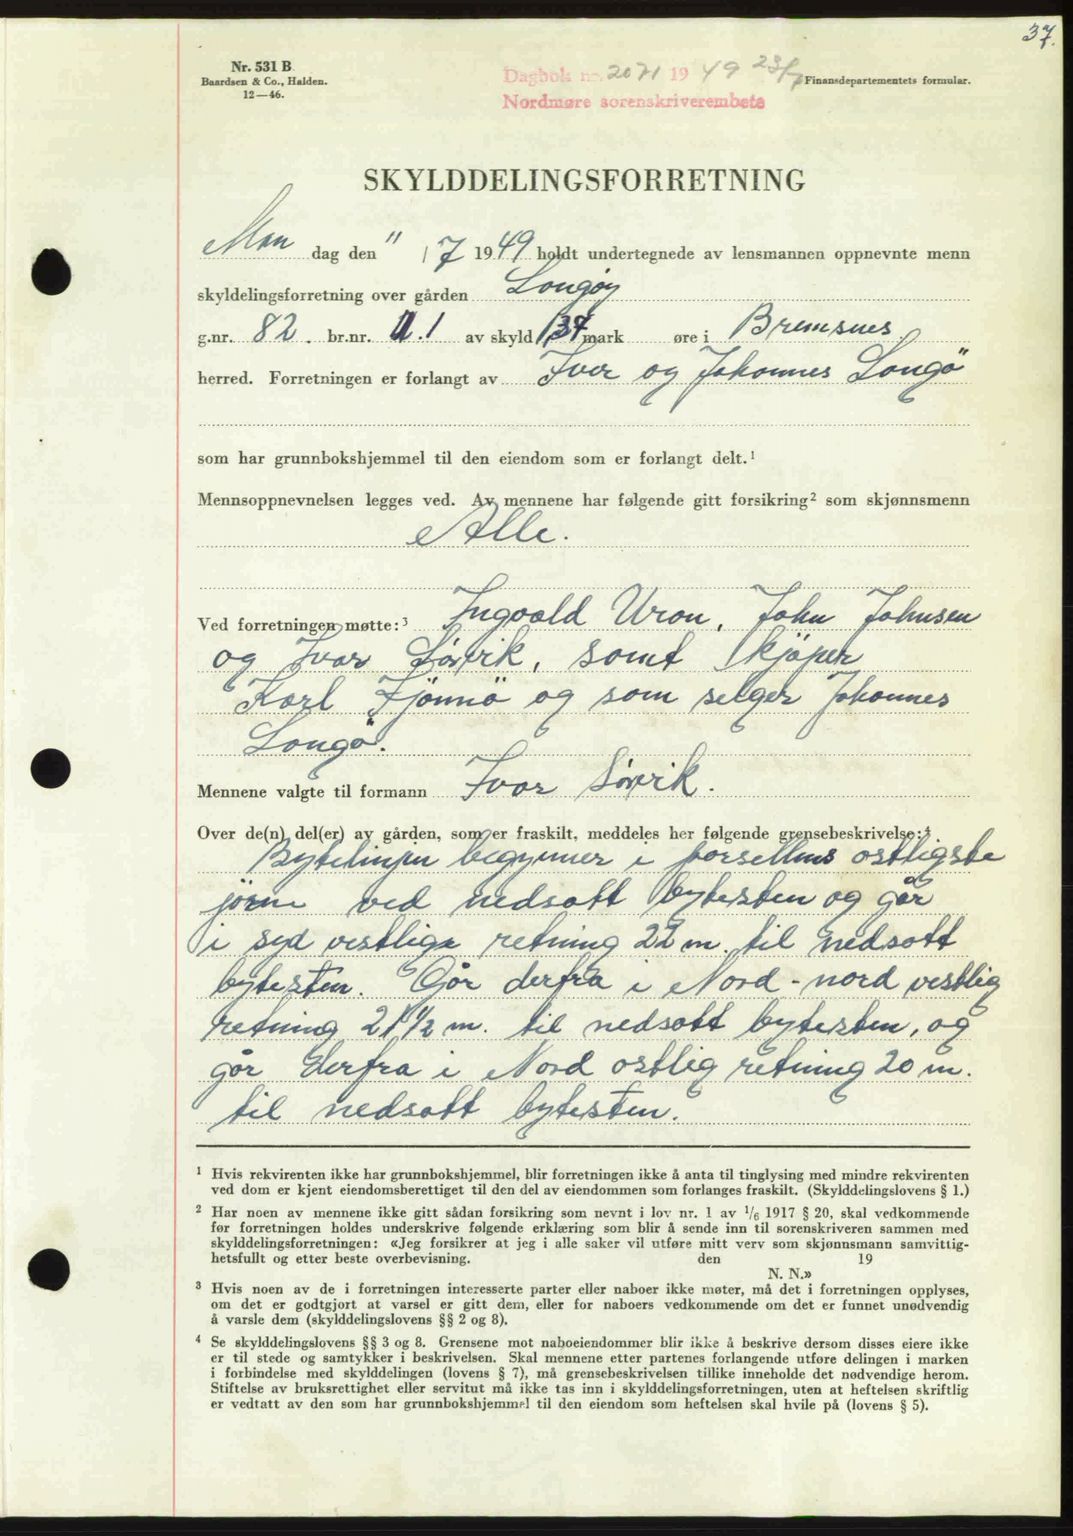 37.
Nr. 531 B
Baardsen & Co., Halden.
12—46.
Dagbok nr. 2071 1949 23/7
Nordmøre sorenskriverembete
Finansdepartementets formular.
SKYLDDELINGSFORRETNING
Man dag den 11/7 1949 holdt undertegnede av lensmannen oppnevnte menn
skyldelingsforretning over gården Longøy
g.nr. 82. br.nr. 1 av skyld mark øre i Bremsnes
herred. Forretningen er forlangt av Iver og Johannes Longö
som har grunnbokshjemmel til den eiendom som er forlangt delt.¹
Mennsoppnevnelsen legges ved. Av mennene har følgende gitt forsikring² som skjønnsmenn
Alle.
Ved forretningen møtte:³ Ingvald Uron, John Johnsen
og Ivar Sørvik, samt kjöper
Karl Fjönnö og som selger Johannes
Longö.
Mennene valgte til formann Ivar Sørvik.
Over de(n) del(er) av gården, som er fraskilt, meddeles her følgende grensebeskrivelse:⁴
Bytelinjen begynner i parsellens ostligste
jörne ved nedsatt bytesten og går
i syd vestlige retning 22 m. til nedsatt
bytesten. Går derfra i Nord-nord vestlig
retning 21 1/2 m. til nedsatt bytesten, og
går derfra i Nord ostlig retning 20 m.
til nedsatt bytesten.
¹ Hvis rekvirenten ikke har grunnbokshjemmel, blir forretningen ikke å anta til tinglysing med mindre rekvirenten
ved dom er kjent eiendomsberettiget til den del av eiendommen som forlanges fraskilt. (Skylddelingslovens § 1.)
² Har noen av mennene ikke gitt sådan forsikring som nevnt i lov nr. 1 av 1/6 1917 § 20, skal vedkommende
før forretningen holdes underskrive følgende erklæring som blir å sende inn til sorenskriveren sammen med
skylddelingsforretningen: «Jeg forsikrer at jeg i alle saker vil utføre mitt verv som skjønnsmann samvittig-
hetsfullt og etter beste overbevisning. den 19
N. N.»
³ Hvis noen av de i forretningen interesserte parter eller naboer ikke møter, må det i forretningen opplyses,
om det er godtgjort at varsel er gitt dem, eller for naboers vedkommende om det er funnet unødvendig
å varsle dem (skylddelingslovens §§ 2 og 8).
⁴ Se skylddelingslovens §§ 3 og 8. Grensene mot naboeiendommer blir ikke å beskrive dersom disses eiere ikke
er til stede og samtykker i beskrivelsen. Skal mennene etter partenes forlangende utføre delingen i marken
i forbindelse med skylddelingen (lovens § 7), må grensebeskrivelsen tillike inneholde det nødvendige herom.
Stiftelse av bruksrettighet eller servitut må ikke tas inn i skylddelingsforretningen, uten at heftelsen skriftlig
er vedtatt av den som har grunnbokshjemmel til den eiendom som heftelsen skal hvile på (lovens § 5).